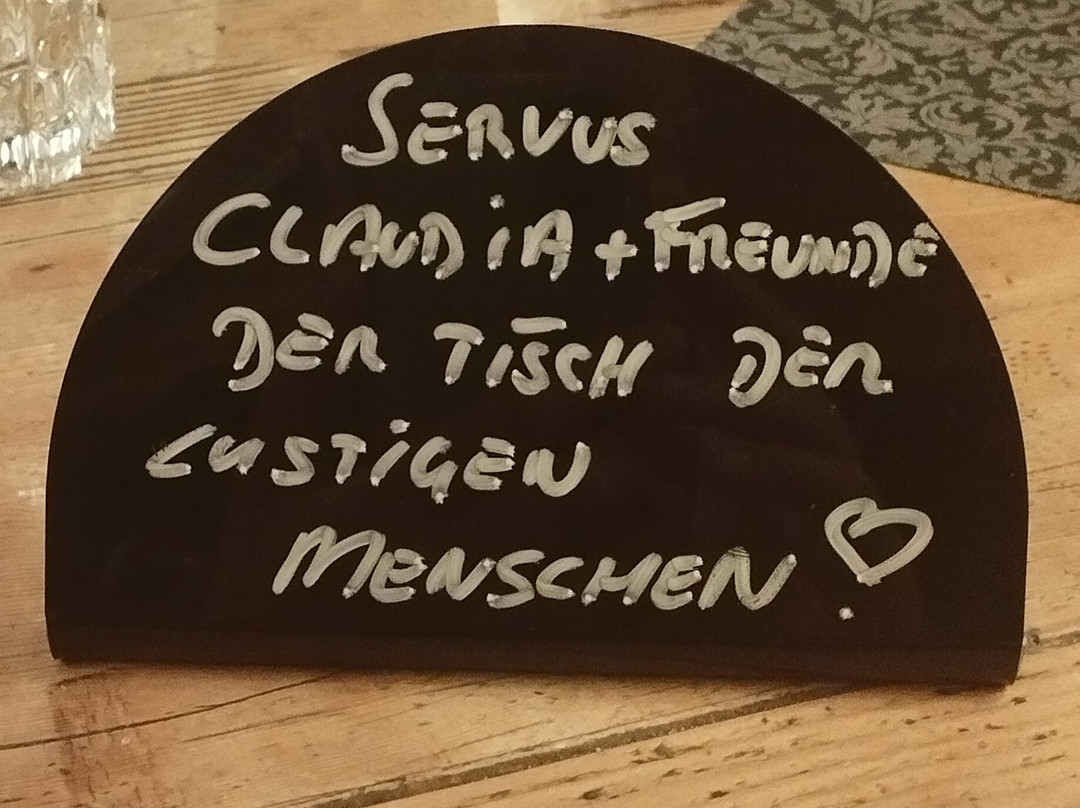 SERVUS
CLAUDiA + FREUNDE
DER TiSCH DER
LUSTiGEN
MENSCHEN